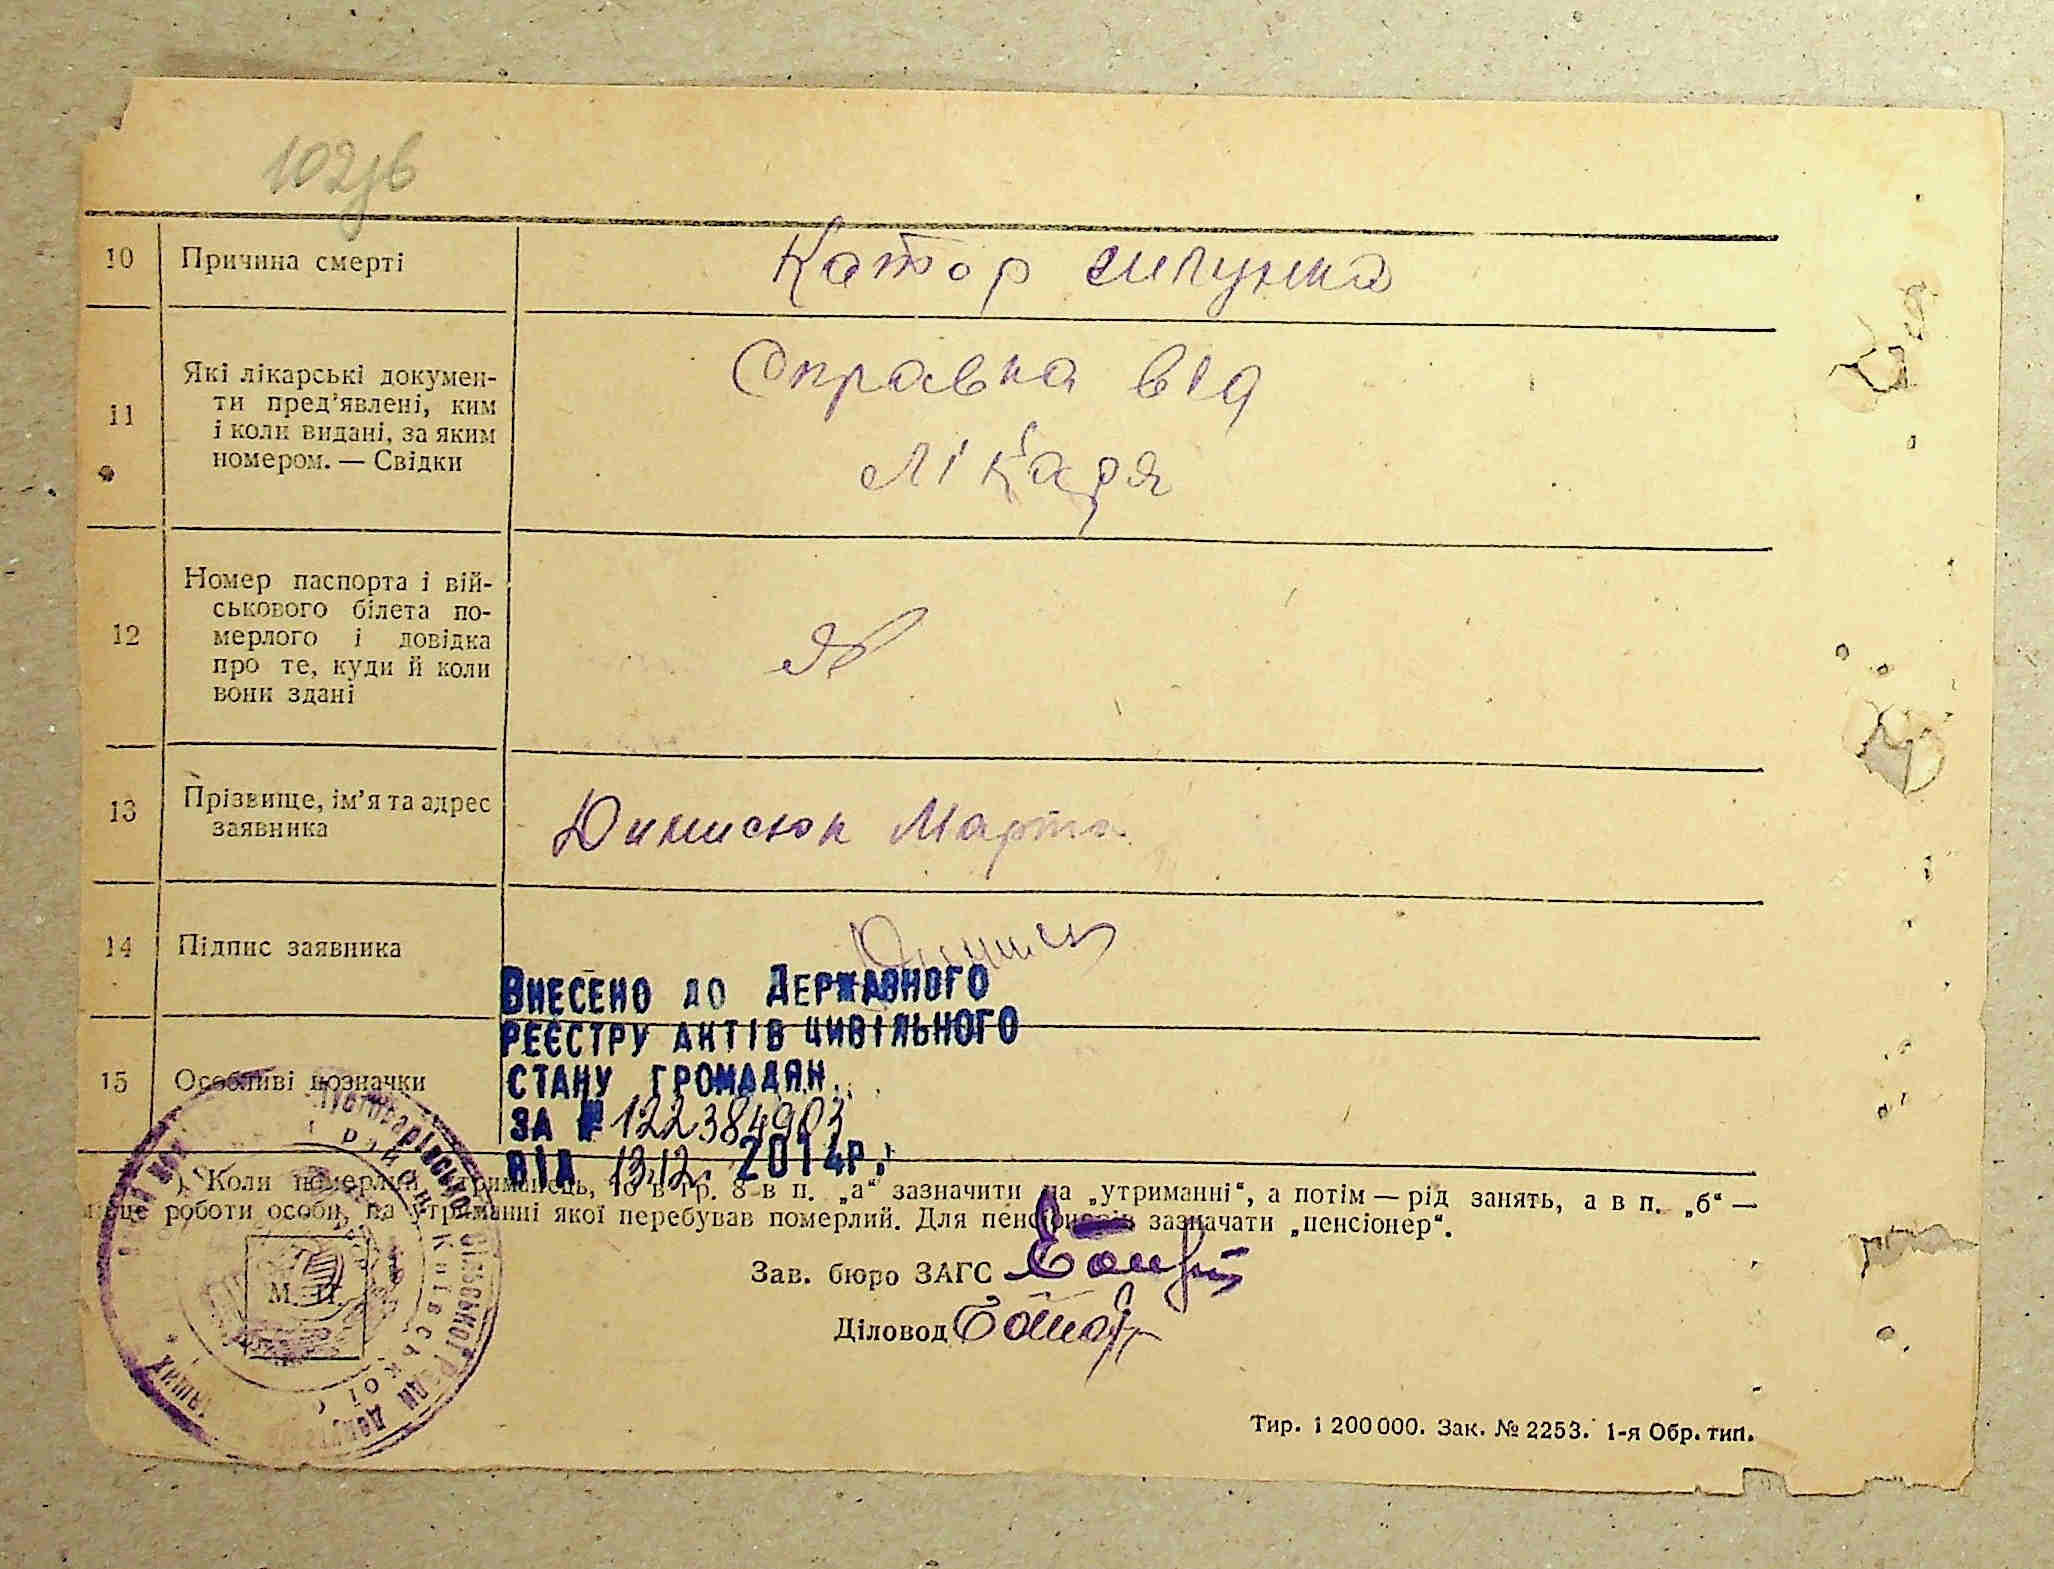 10 Причина смерті Катор жилунка
11 Які лікарські докумен-
ти пред'явлені, ким
і коли видані, за яким
номером. — Свідки
Справка від
лікаря
12 Номер паспорта і вій-
ськового білета по-
мерлого і довідка
про те, куди й коли
вони здані
13 Прізвище, ім'я та адрес
заявника
Динисюк Марта
14 Підпис заявника
Внесено до Державного
реєстру актів цивільного
15 Особливі позначки
стану громадян
за № 122384903
від 13.12. 2014р.
) Коли померлий утриманець, то в гр. 8 в п. „а“ зазначити на „утриманні“, а потім — рід занять, а в п. „б“ —
місце роботи особи, на утриманні якої перебував померлий. Для пенсіонерів зазначати „пенсіонер“.
Зав. бюро ЗАГС
М. П.
Діловод
Тир. 1 200 000. Зак. № 2253. 1-я Обр. тип.